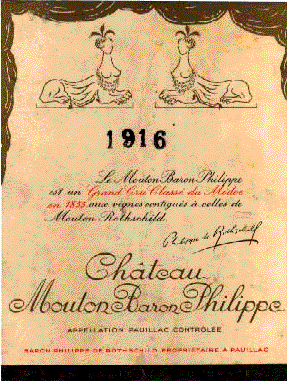 1916
Le Mouton Baron Philippe
est un Grand Cru Classé du Médoc
en 1855 aux vignes contiguës à celles de
Mouton Rothschild.
Philippe de Rothschild
Château
Mouton Baron Philippe
APPELLATION PAUILLAC CONTRÔLÉE
BARON PHILIPPE DE ROTHSCHILD PROPRIÉTAIRE À PAUILLAC